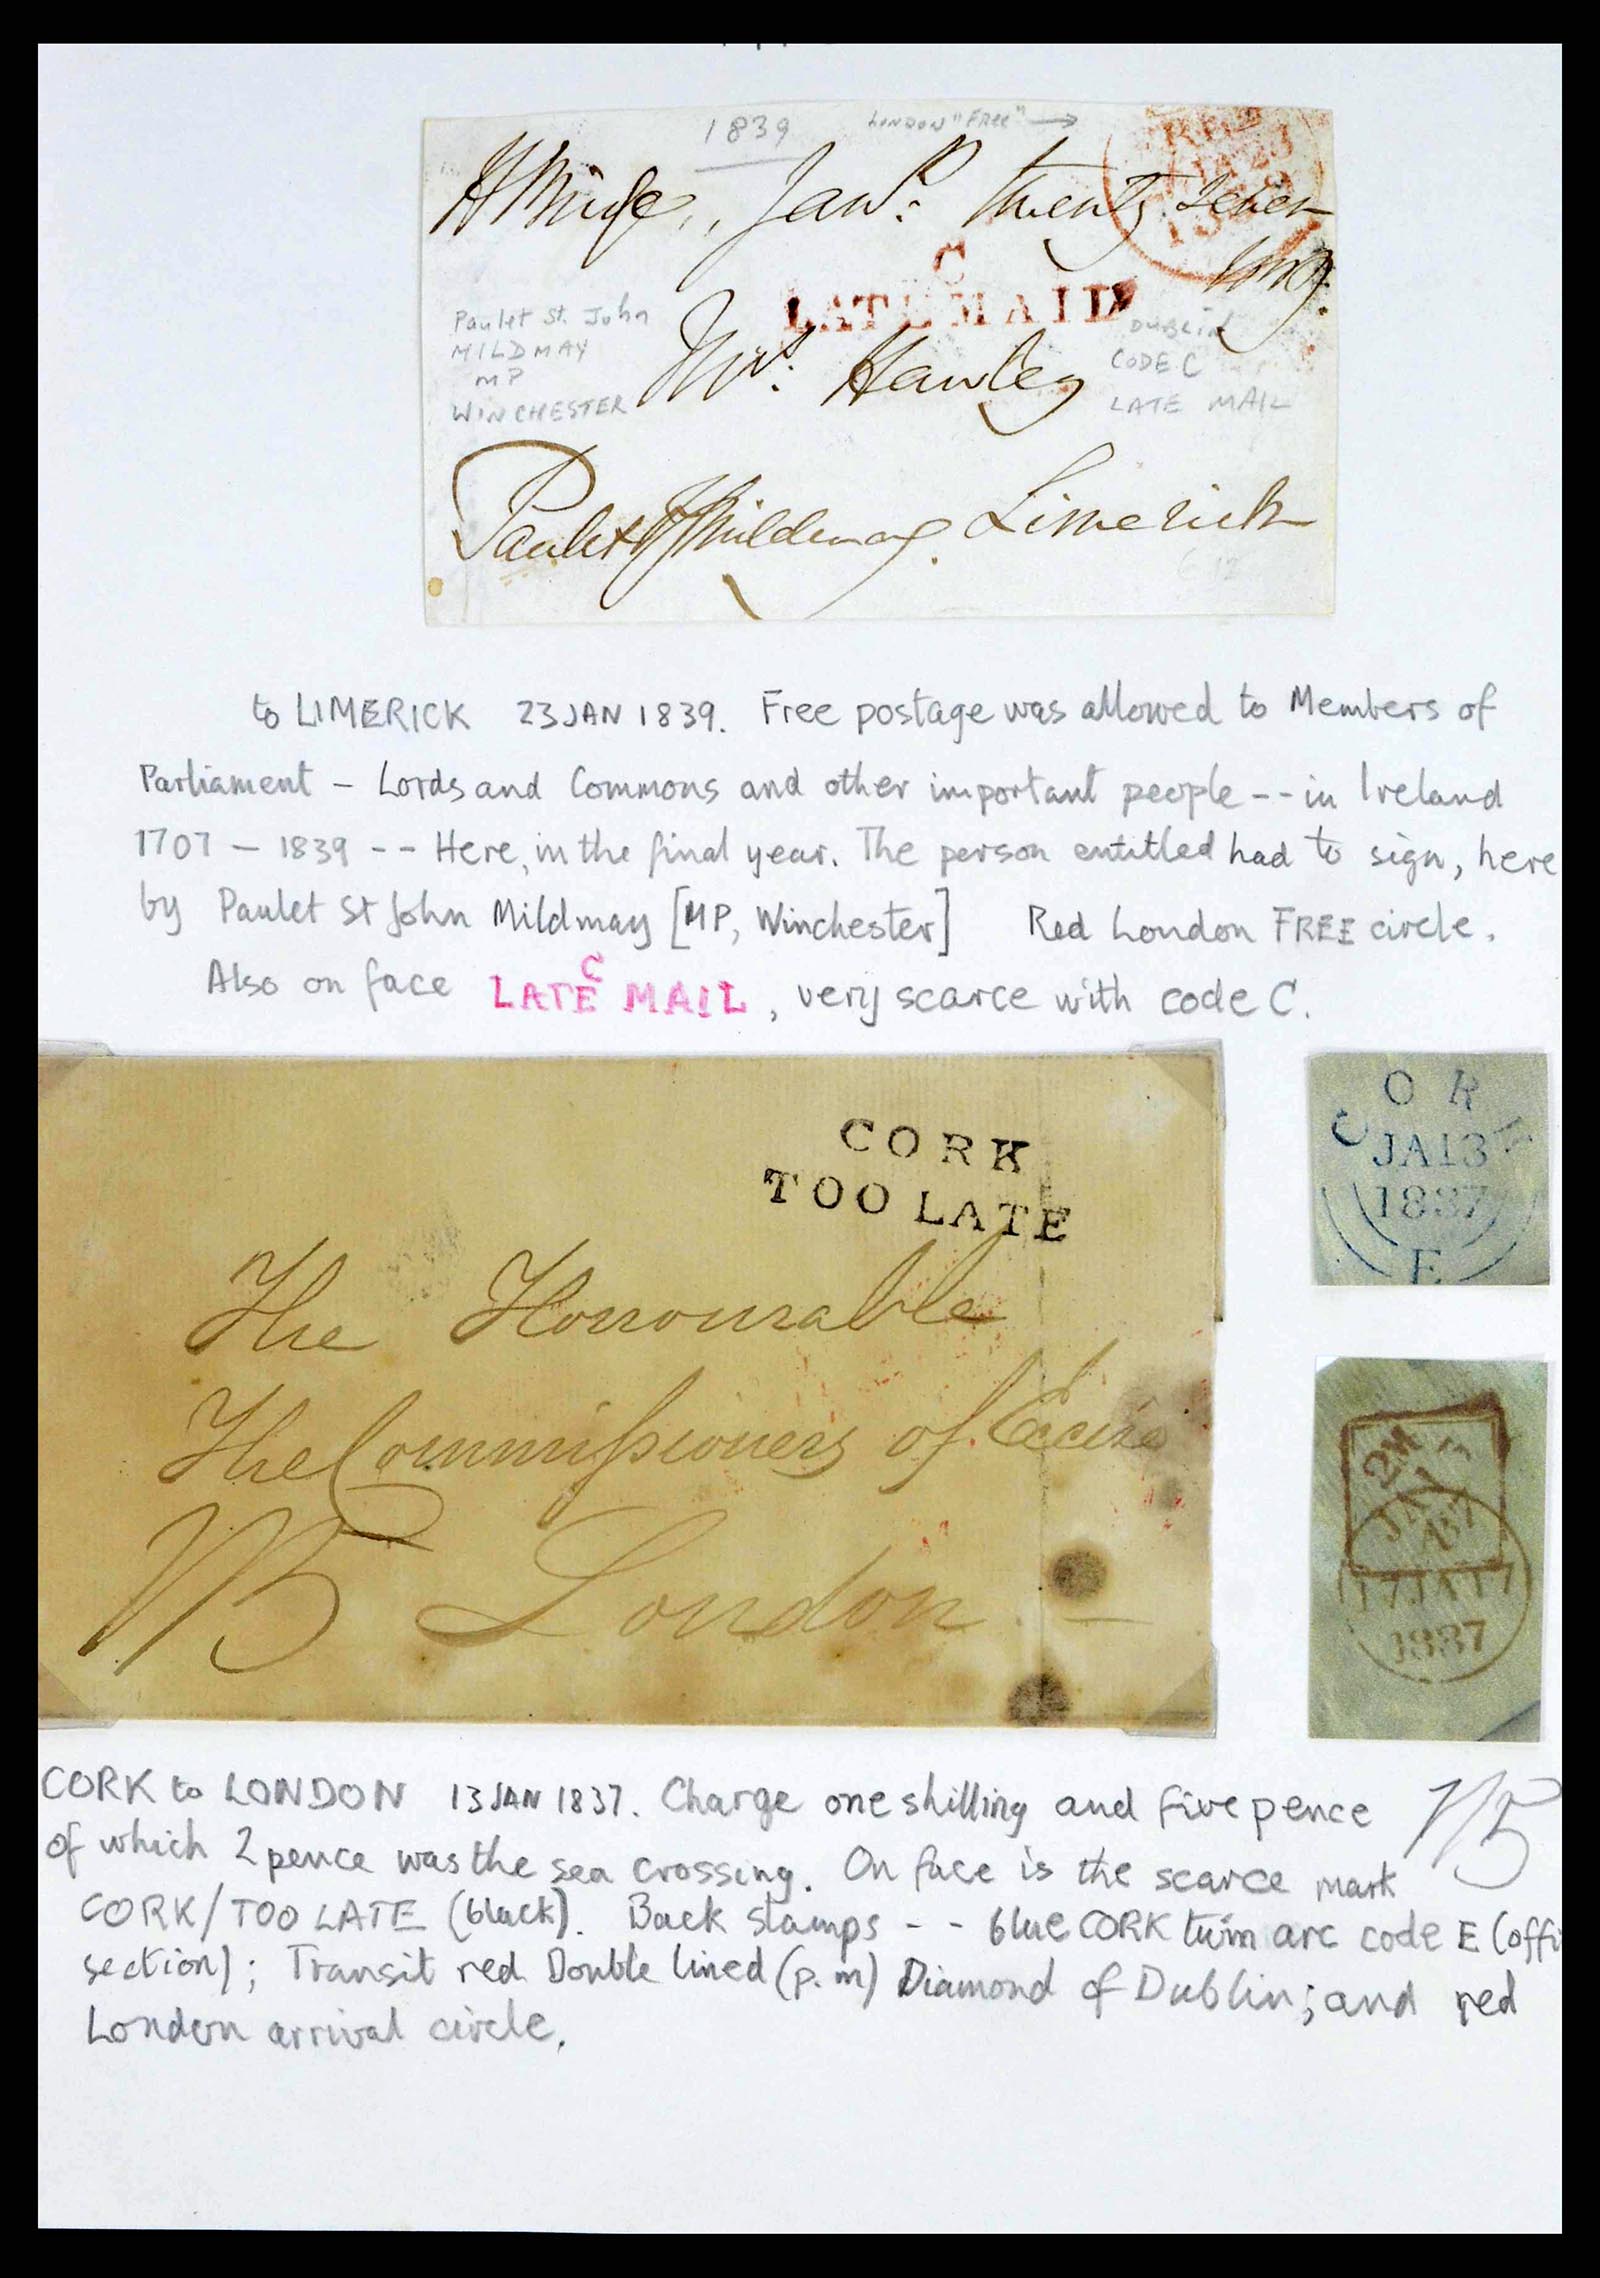 1839 LONDON "FREE" →
Janʸ twenty seven
C
LATE MAIL
Paulet St. John
MILDMAY
MP
WINCHESTER
DUBLIN
CODE C
LATE MAIL
Mrs: Hawley
Limerick
Paulet St J Mildmay.
to LIMERICK 23 JAN 1839. Free postage was allowed to Members of
Parliament - Lords and Commons and other important people -- in Ireland
1707 - 1839 -- Here, in the final year. The person entitled had to sign, here
by Paulet St John Mildmay [MP, Winchester] Red London FREE circle.
Also on face LATE C MAIL, very scarce with code C.
CORK
TOO LATE
The Honourable
The Commissioners of Excise
1/5 London
CORK
JA 13
1837
E
2
JA
A37
17 JA 17
1837
CORK to LONDON 13 JAN 1837. Charge one shilling and five pence 1/5
of which 2 pence was the sea crossing. On face is the scarce mark
CORK/TOO LATE (black). Back stamps -- blue CORK twin arc code E (offi
section); Transit red Double lined (p.m) Diamond of Dublin; and red
London arrival circle.